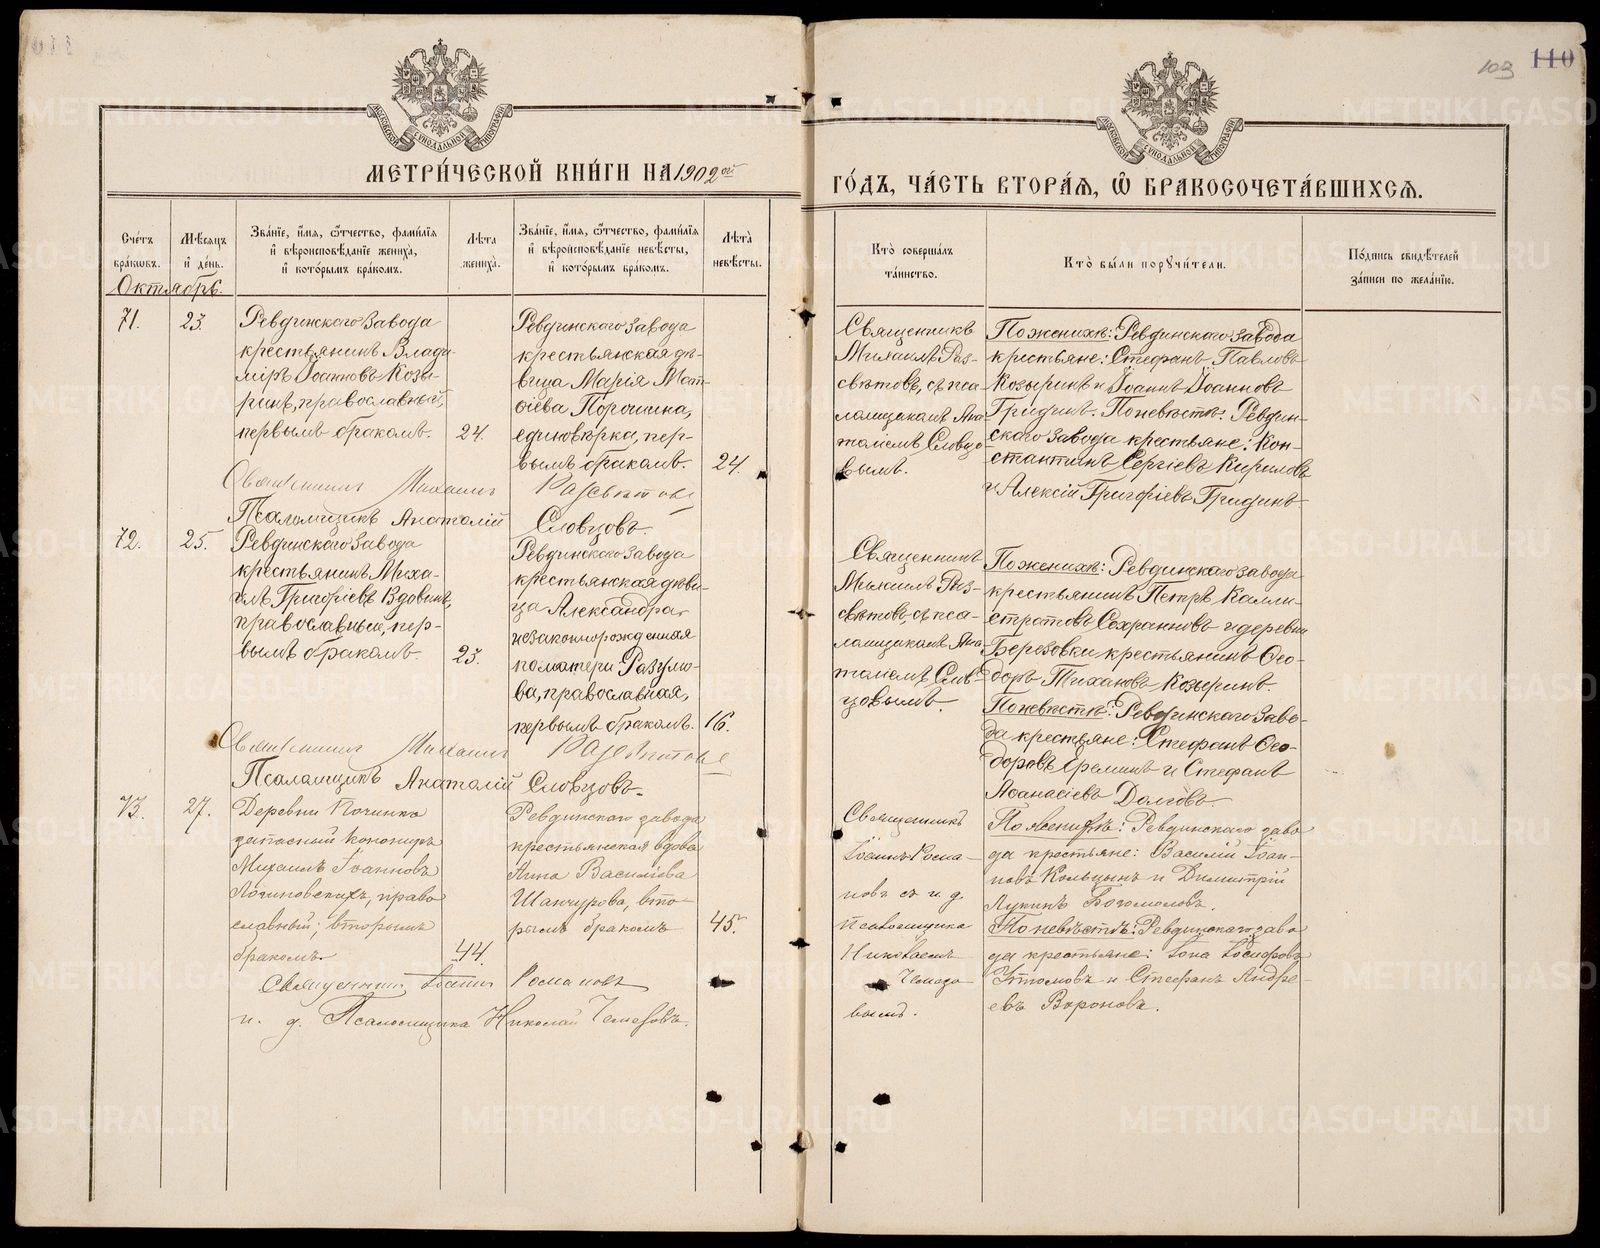 103 110
МЕТРИ́ЧЕСКОЙ КНИ́ГИ НА 1902ой
ГО́ДЪ, ЧА́СТЬ ВТОРА́Ѧ, Ѿ БРАКОСОЧЕТА́ВШИХСѦ.
Сче́тъ
бра́ковъ.
Мѣ́сѧцъ
и҆ де́нь.
Зва́нїе, и҆́мѧ, ѻ҆́тчество, фами́лїѧ
и҆ вѣроисповѣ́данїе жениха̀,
и҆ кото́рымъ бра́комъ.
Лѣ́та
жениха̀.
Зва́нїе, и҆́мѧ, ѻ҆́тчество, фами́лїѧ
и҆ вѣроисповѣ́данїе невѣ́сты,
и҆ кото́рымъ бра́комъ.
Лѣ́та
невѣ́сты.
Кто̀ соверша́лъ
та́инство.
Кто̀ бы́ли порꙋчи́тели.
По́дпись свидѣ́телей
за́писи по жела́нїю.
Октябрь.
71.
23.
Ревдинскаго завода
крестьянинъ Влади-
миръ Іоанновъ Козы-
ринъ, православный,
первымъ бракомъ.
24.
Ревдинскаго завода
крестьянская дѣ-
вица Марія Мат-
ѳіева Порошина,
единовѣрка, пер-
вымъ бракомъ.
24.
Священникъ
Михаилъ Раз-
свѣтовъ, съ пса-
ломщикомъ Ана-
толіемъ Словцо-
вымъ.
По женихѣ: Ревдинскаго завода
крестьяне: Стефанъ Павловъ
Козыринъ и Іоаннъ Іоанновъ
Гридинъ. По невѣстѣ: Ревдин-
скаго завода крестьяне: Кон-
стантинъ Сергіевъ Кириловъ
и Алексій Григоріевъ Гридинъ.
Священникъ Михаилъ Разсвѣтовъ
Псаломщикъ Анатолій Словцовъ.
72.
25.
Ревдинскаго завода
крестьянинъ Миха-
илъ Григоріевъ Вдовинъ,
православный, пер-
вымъ бракомъ.
23.
Ревдинскаго завода
крестьянская дѣви-
ца Александра
незаконнорожденная
по матери Разумо-
ва, православная,
первымъ бракомъ.
16.
Священникъ
Михаилъ Раз-
свѣтовъ, съ пса-
ломщикомъ Ана-
толіемъ Слов-
цовымъ.
По женихѣ: Ревдинскаго завода
крестьянинъ Петръ Калли-
стратовъ Сохранновъ и деревни
Березовки крестьянинъ Ѳео-
доръ Тихановъ Козыринъ.
По невѣстѣ: Ревдинскаго заво-
да крестьяне: Стефанъ Ѳео-
доровъ Ереминъ и Стефанъ
Аѳанасіевъ Долговъ.
Священникъ Михаилъ Разсвѣтовъ
Псаломщикъ Анатолій Словцовъ.
73.
27.
Деревни Починка
запасный канониръ
Михаилъ Іоанновъ
Логиновскихъ, право
славный; вторымъ
бракомъ
44.
Ревдинскаго завода
крестьянская вдова
Анна Василіева
Шанчурова, вто-
рымъ бракомъ
45.
Священникъ
Іоаннъ Рома-
новъ съ и. д.
псаломщика
Николаемъ
Чемезо
вымъ.
По женихѣ: Ревдинскаго заво
да крестьяне: Василій Іоан-
новъ Кольцынъ и Димитрій
Лукинъ Богомоловъ.
По невѣстѣ: Ревдинскаго заво
да крестьяне: Іона Іосифовъ
Утюмовъ и Стефанъ Андре-
евъ Вороновъ.
Священникъ Іоаннъ Романовъ
и. д. Псаломщика Николай Чемезовъ.
METRIKI.GASO-URAL.RU